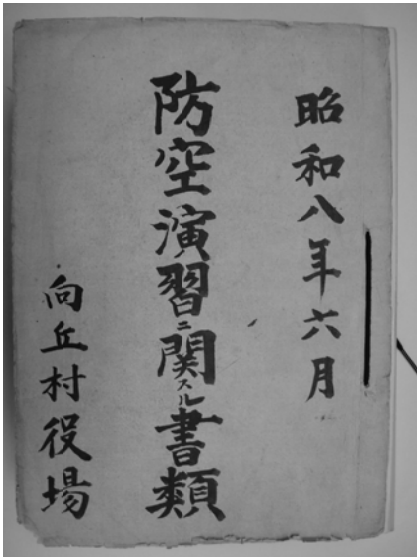 昭和八年六月
防空演習ニ関スル書類
向丘村役場